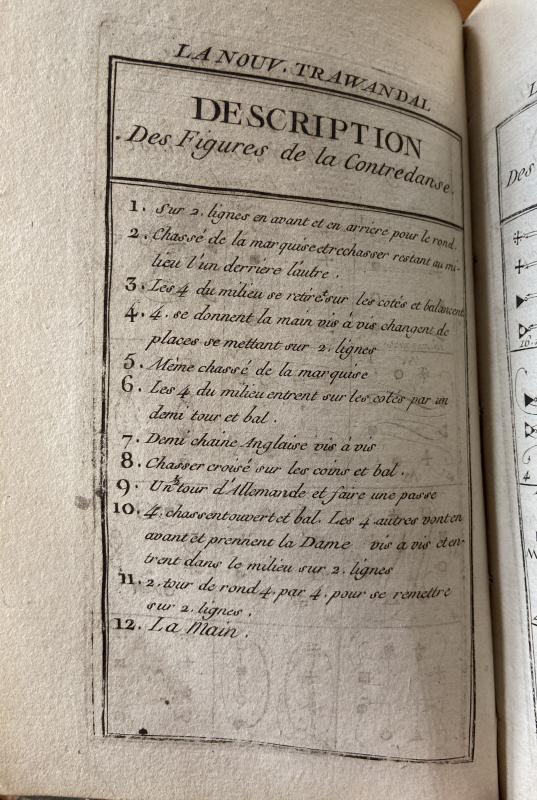 LA NOUV. TRAWANDAL
DESCRIPTION
Des Figures de la Contredanse.
1. Sur 2. lignes en avant et en arriere pour le rond.
2. Chassé de la marquise et rechasser restant au mi-
lieu l'un derriere l'autre.
3. Les 4 du milieu se retiret sur les cotés et balancent
4. 4. se donnent la main vis à vis changent de
places se mettant sur 2. lignes
5. Même chassé de la marquise
6. Les 4 du milieu entrent sur les cotés par un
demi tour et bal.
7. Demi chaine Anglaise vis à vis
8. Chasser croisé sur les coins et bal.
9. Un tour d'Allemande et faire une passe
10. 4. chassent ouvert et bal. Les 4 autres vont en
avant et prennent la Dame vis a vis et en-
trent dans le milieu sur 2. lignes
11. 2. tour de rond 4. par 4. pour se remettre
sur 2. lignes.
12. La Main.
Des